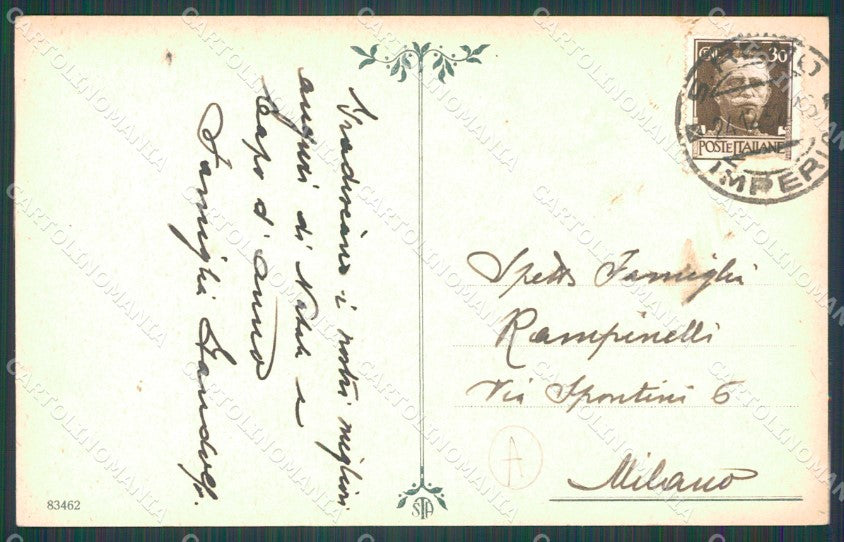 Gradiscano i nostri migliori
auguri di Natale e
Capo d'anno
Famiglia
30
POSTE ITALIANE
IMPERIA
Spett. Famiglia
Rampinelli
Via Spontini 6
Milano
A
83462
STA
CARTOLINOMANIA